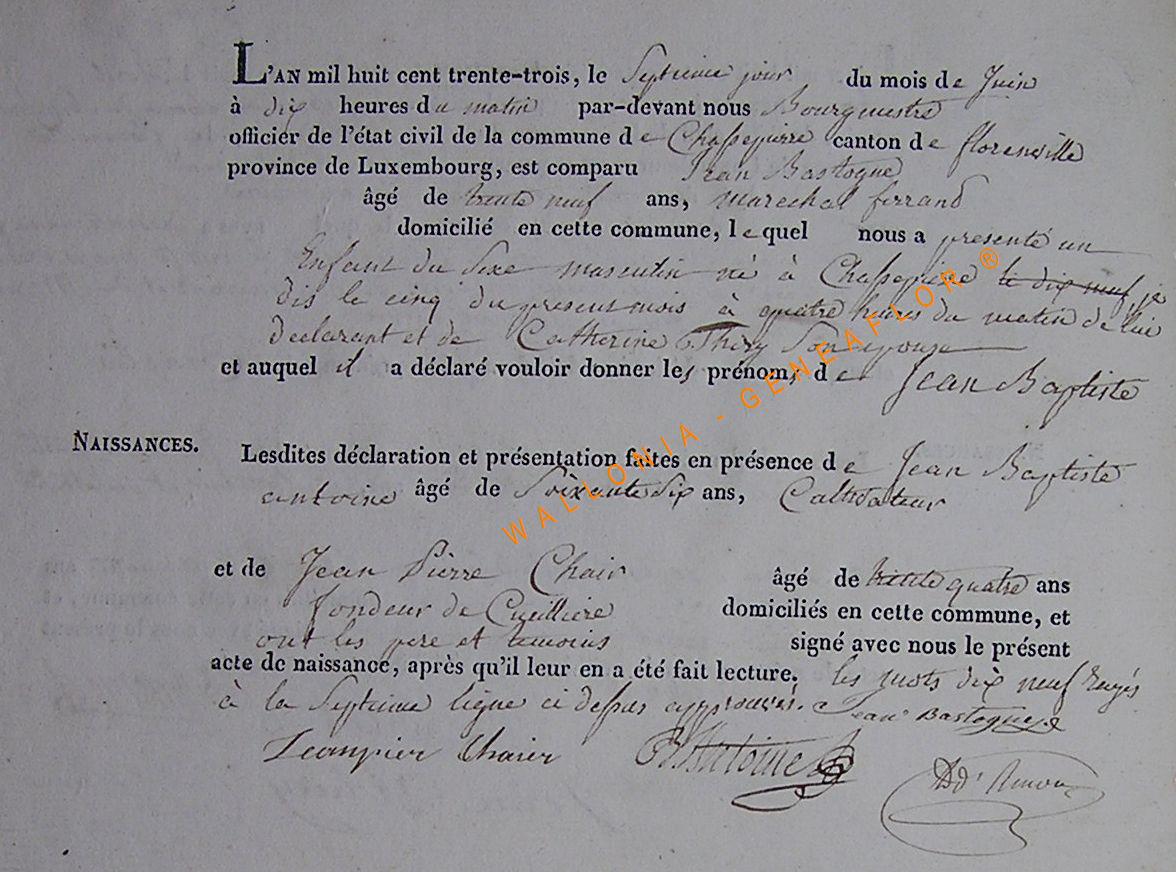 L'AN mil huit cent trente-trois, le Septieme jour du mois de Juin
à dix heures du matin par-devant nous Bourgmestre
officier de l'état civil de la commune de Chassepierre canton de florenville
province de Luxembourg, est comparu Jean Bastogne
âgé de trente neuf ans, marechal ferrand
domicilié en cette commune, lequel nous a presenté un
Enfant du Sexe masculin né à Chassepierre le dix neuf je
dis le cinq du present mois à quatre heures du matin de lui
declarant et de Catherine Thiry Son epouse
et auquel il a déclaré vouloir donner les prénoms de Jean Baptiste
NAISSANCES. Lesdites déclaration et présentation faites en présence de Jean Baptiste
antoine âgé de Soixante dix ans, Cultivateur
et de Jean Pierre Chair âgé de trente quatre ans
fondeur de Cuilliere domiciliés en cette commune, et
ont les pere et temoins signé avec nous le présent
acte de naissance, après qu'il leur en a été fait lecture. les mots dix neuf rayés
à la Septieme ligne ci dessus approuvés. Jean Bastogne
Jeanpier Chaier JBAntoine
WALLONIA - GENEAFLOR ®